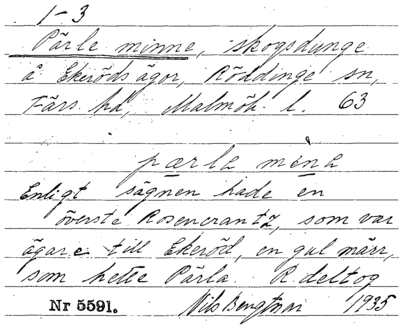 1-3
Pärle minne, skogsdunge
å Ekeröds ägor, Röddinge sn,
Färs hd, Malmöh. l. 63
pærla mena
Enligt sägnen hade en
överste Rosencrantz, som var
ägare till Ekeröd, en gul märr,
som hette Pärla. R deltog
Nr 5591. Nils Bengtsson 1935